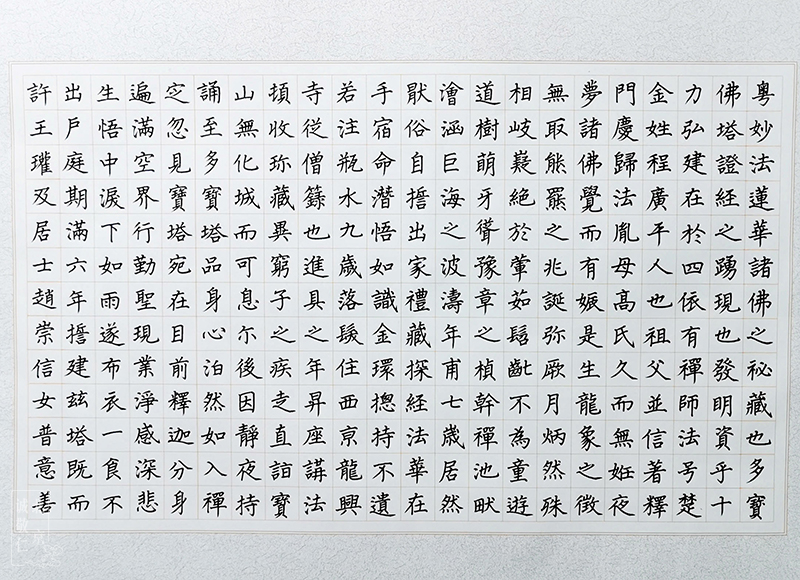 粵妙法蓮華諸佛之祕藏也多寶
佛塔證經之踴現也發明資乎十
力弘建在於四依有禪師法号楚
金姓程廣平人也祖父並信著釋
門慶歸法胤母髙氏久而無姙夜
夢諸佛覺而有娠是生龍象之徵
無取熊羆之兆誕弥厥月炳然殊
相岐嶷絕於葷茹髫齔不為童遊
道樹萌牙聳豫章之楨幹禪池畎
澮涵巨海之波濤年甫七歲居然
猒俗自誓出家禮藏探經法華在
手宿命潛悟如識金環揔持不遺
若注瓶水九歲落髮住西京龍興
寺從僧籙也進具之年昇座講法
頓收珎藏異窮子之疾走直詣寶
山無化城而可息尒後因靜夜持
誦至多寶塔品身心泊然如入禪
定忽見寶塔宛在目前釋迦分身
遍滿空界行勤聖現業淨感深悲
生悟中淚下如雨遂布衣一食不
出戶庭期滿六年誓建茲塔既而
許王瓘及居士趙崇信女普意善